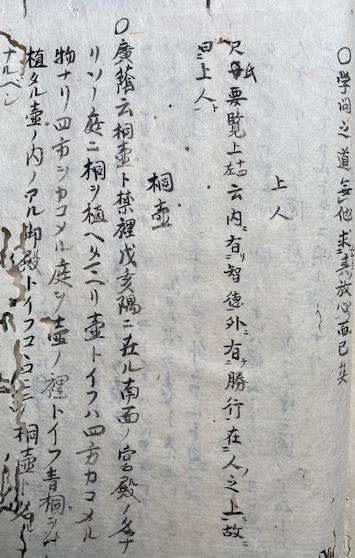 〇学問之道無他求其放心而已矣
上人
尺氏要覧上云内有智徳外有勝行在人之上故
曰上人ト
桐壺
〇廣蔭云桐壺ト禁裡戊亥隅ニ在ル南面ノ宮殿ノ名ナ
リソノ庭ニ桐ヲ植ヘタマヘリ壺トイフハ四方カコメル
物ナリ四方ヲカコメル庭ヲ壺ノ裡トイフ青桐ヲ
植タル壺ノ内ノアル御殿トイフコヽロニテ桐壺ト
ナルベシ